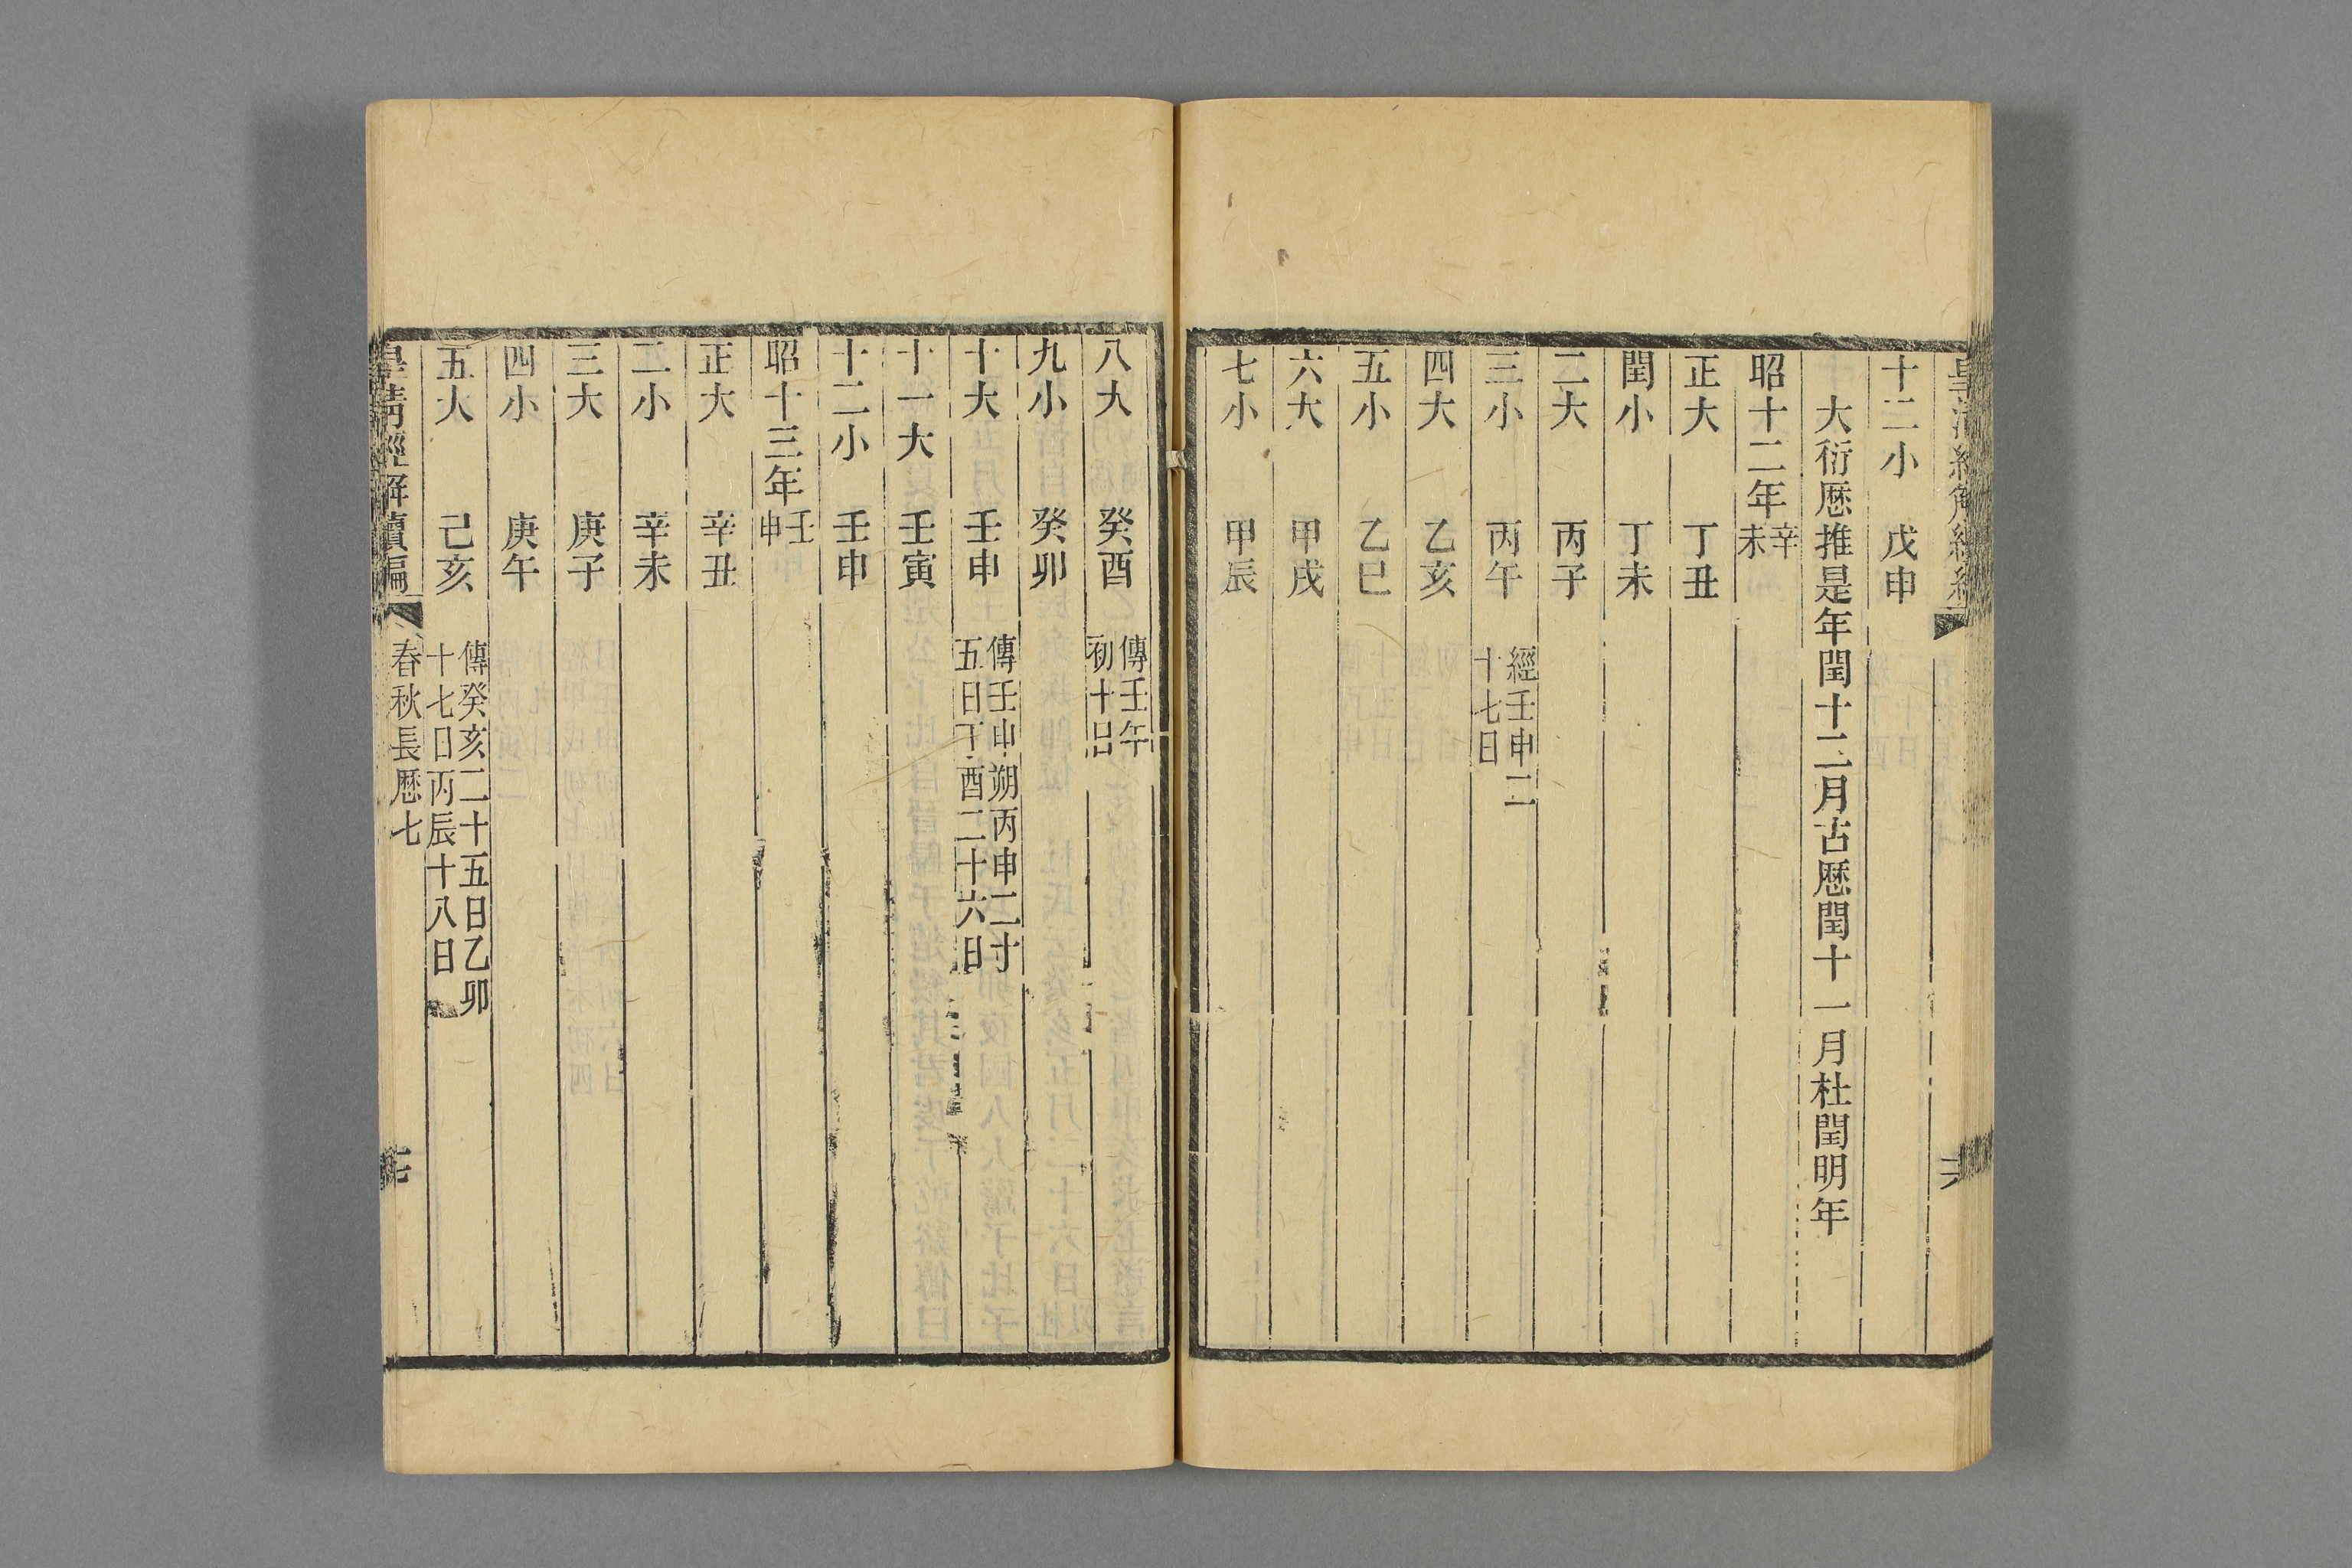 十二小 戊申
大衍厯推是年閏十二月古厯閏十一月杜閏明年
昭十二年辛
未
正大 丁丑
閏小 丁未
二大 丙子
三小 丙午 經壬申二
十七日
四大 乙亥
五小 乙巳
六大 甲戌
七小 甲辰
八大 癸酉 傳壬午
初十日
九小 癸卯
十大 壬申 傳壬申朔丙申二十
五日丁酉二十六日
十一大 壬寅
十二小 壬申
昭十三年壬
申
正大 辛丑
二小 辛未
三大 庚子
四小 庚午
五大 己亥 傳癸亥二十五日乙卯
十七日丙辰十八日
皇清經解續編 春秋長厯七